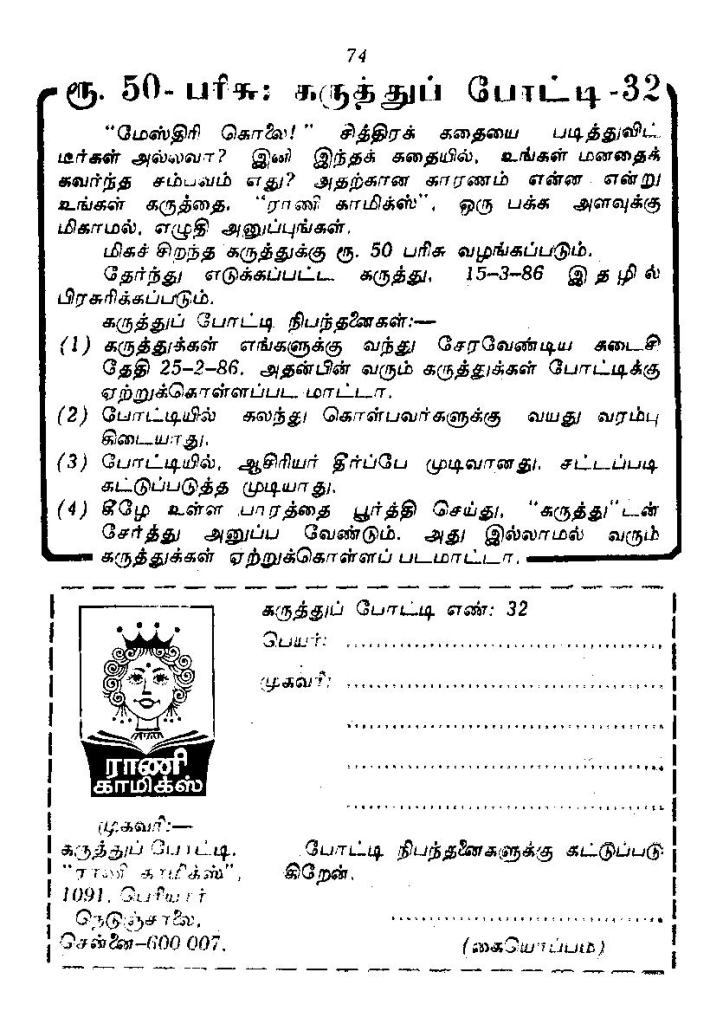 74
ரூ. 50- பரிசு: கருத்துப் போட்டி -32
"மேஸ்திரி கொலை!" சித்திரக் கதையை படித்துவிட்
டீர்கள் அல்லவா? இனி இந்தக் கதையில், உங்கள் மனதைக்
கவர்ந்த சம்பவம் எது? அதற்கான காரணம் என்ன என்று
உங்கள் கருத்தை, "ராணி காமிக்ஸ்", ஒரு பக்க அளவுக்கு
மிகாமல், எழுதி அனுப்புங்கள்.
மிகச் சிறந்த கருத்துக்கு ரூ. 50 பரிசு வழங்கப்படும்.
தேர்ந்து எடுக்கப்பட்ட கருத்து, 15-3-86 இதழில்
பிரசுரிக்கப்படும்.
கருத்துப் போட்டி நிபந்தனைகள்:—
(1) கருத்துக்கள் எங்களுக்கு வந்து சேரவேண்டிய கடைசி
தேதி 25-2-86. அதன்பின் வரும் கருத்துக்கள் போட்டிக்கு
ஏற்றுக்கொள்ளப்பட மாட்டா.
(2) போட்டியில் கலந்து கொள்பவர்களுக்கு வயது வரம்பு
கிடையாது.
(3) போட்டியில், ஆசிரியர் தீர்ப்பே முடிவானது. சட்டப்படி
கட்டுப்படுத்த முடியாது.
(4) கீழே உள்ள பாரத்தை பூர்த்தி செய்து, "கருத்து"டன்
சேர்த்து அனுப்ப வேண்டும். அது இல்லாமல் வரும்
கருத்துக்கள் ஏற்றுக்கொள்ளப் படமாட்டா.
கருத்துப் போட்டி எண்: 32
பெயர்:
முகவரி:
ராணி
காமிக்ஸ்
முகவரி:—
கருத்துப் போட்டி,
"ராணி காமிக்ஸ்",
1091, பெரியார்
நெடுஞ்சாலை,
சென்னை-600 007.
போட்டி நிபந்தனைகளுக்கு கட்டுப்படு
கிறேன்.
(கையொப்பம்)